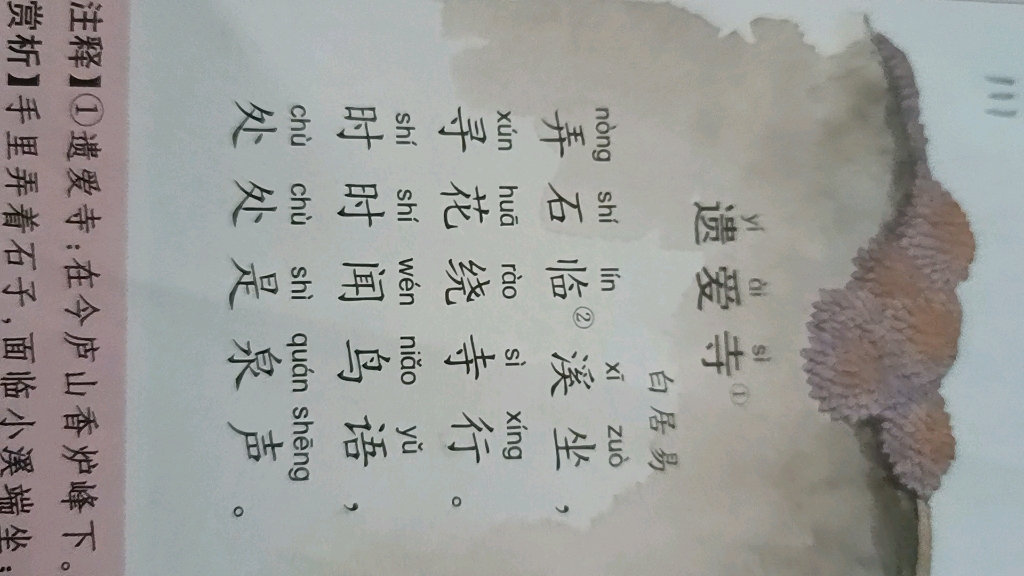 yí ài sì
遗爱寺①
白居易
nòng shí lín xī zuò
弄石临②溪坐，
xún huā rào sì xíng
寻花绕寺行。
shí shí wén niǎo yǔ
时时闻鸟语，
chù chù shì quán shēng
处处是泉声。
注释】①遗爱寺：在今庐山香炉峰下。
赏析】手里弄着石子，面临小溪端坐；